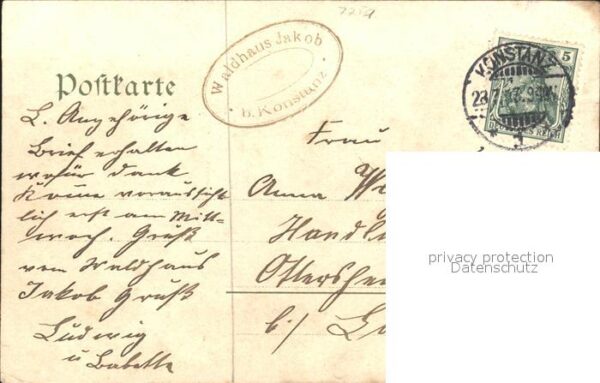 Postkarte
Waldhaus Jakob
b. Konstanz
KONSTANZ
5
L. Angehörige
Brief erhalten
wofür dank
Komme voraussicht
lich erst am Mitt-
woch. Gruß
vom Waldhaus
Jakob Gruß
Ludwig
u Babette
Frau
Anna
Ottershe
b/
privacy protection
Datenschutz